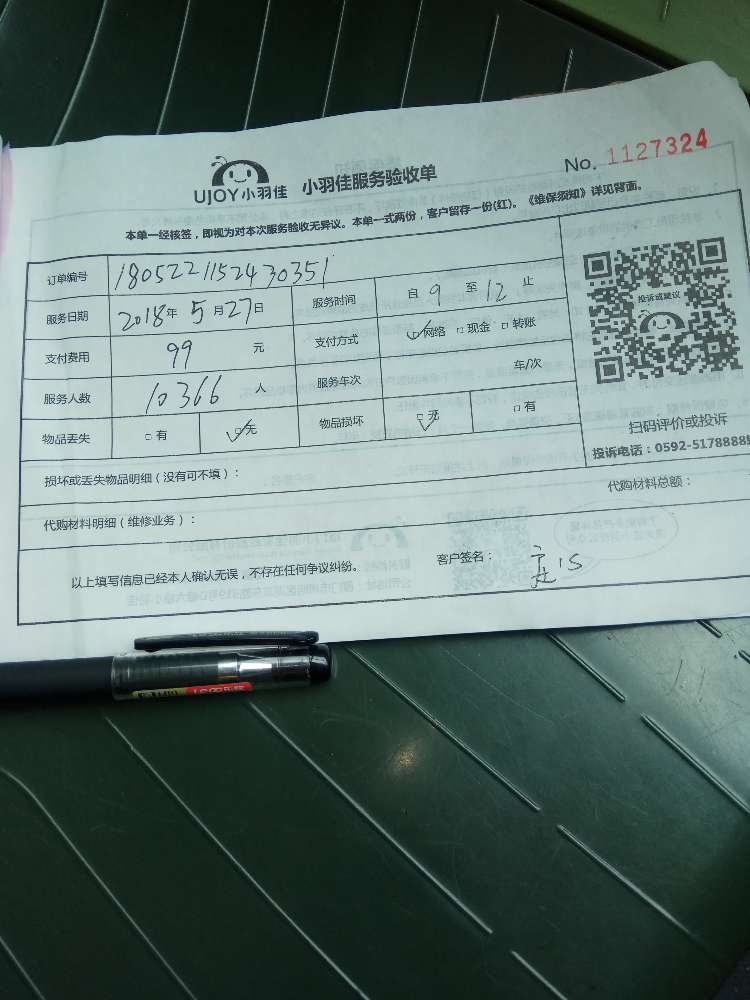 UJOY小羽佳 小羽佳服务验收单 No. 1127324
本单一经核签，即视为对本次服务验收无异议。本单一式两份，客户留存一份(红)。《维保须知》详见背面。
订单编号 1805221152430351
服务日期 2018年 5月27日 服务时间 自 9 至 12 止
支付费用 99 元 支付方式 网络 现金 转账
投诉或建议
服务人数 10366 人 服务车次 车/次
物品丢失 有 无 物品损坏 无 有
扫码评价或投诉
投诉电话：0592-5178888
损坏或丢失物品明细（没有可不填）：
代购材料明细（维修业务）： 代购材料总额：
以上填写信息已经本人确认无误，不存在任何争议纠纷。 客户签名：